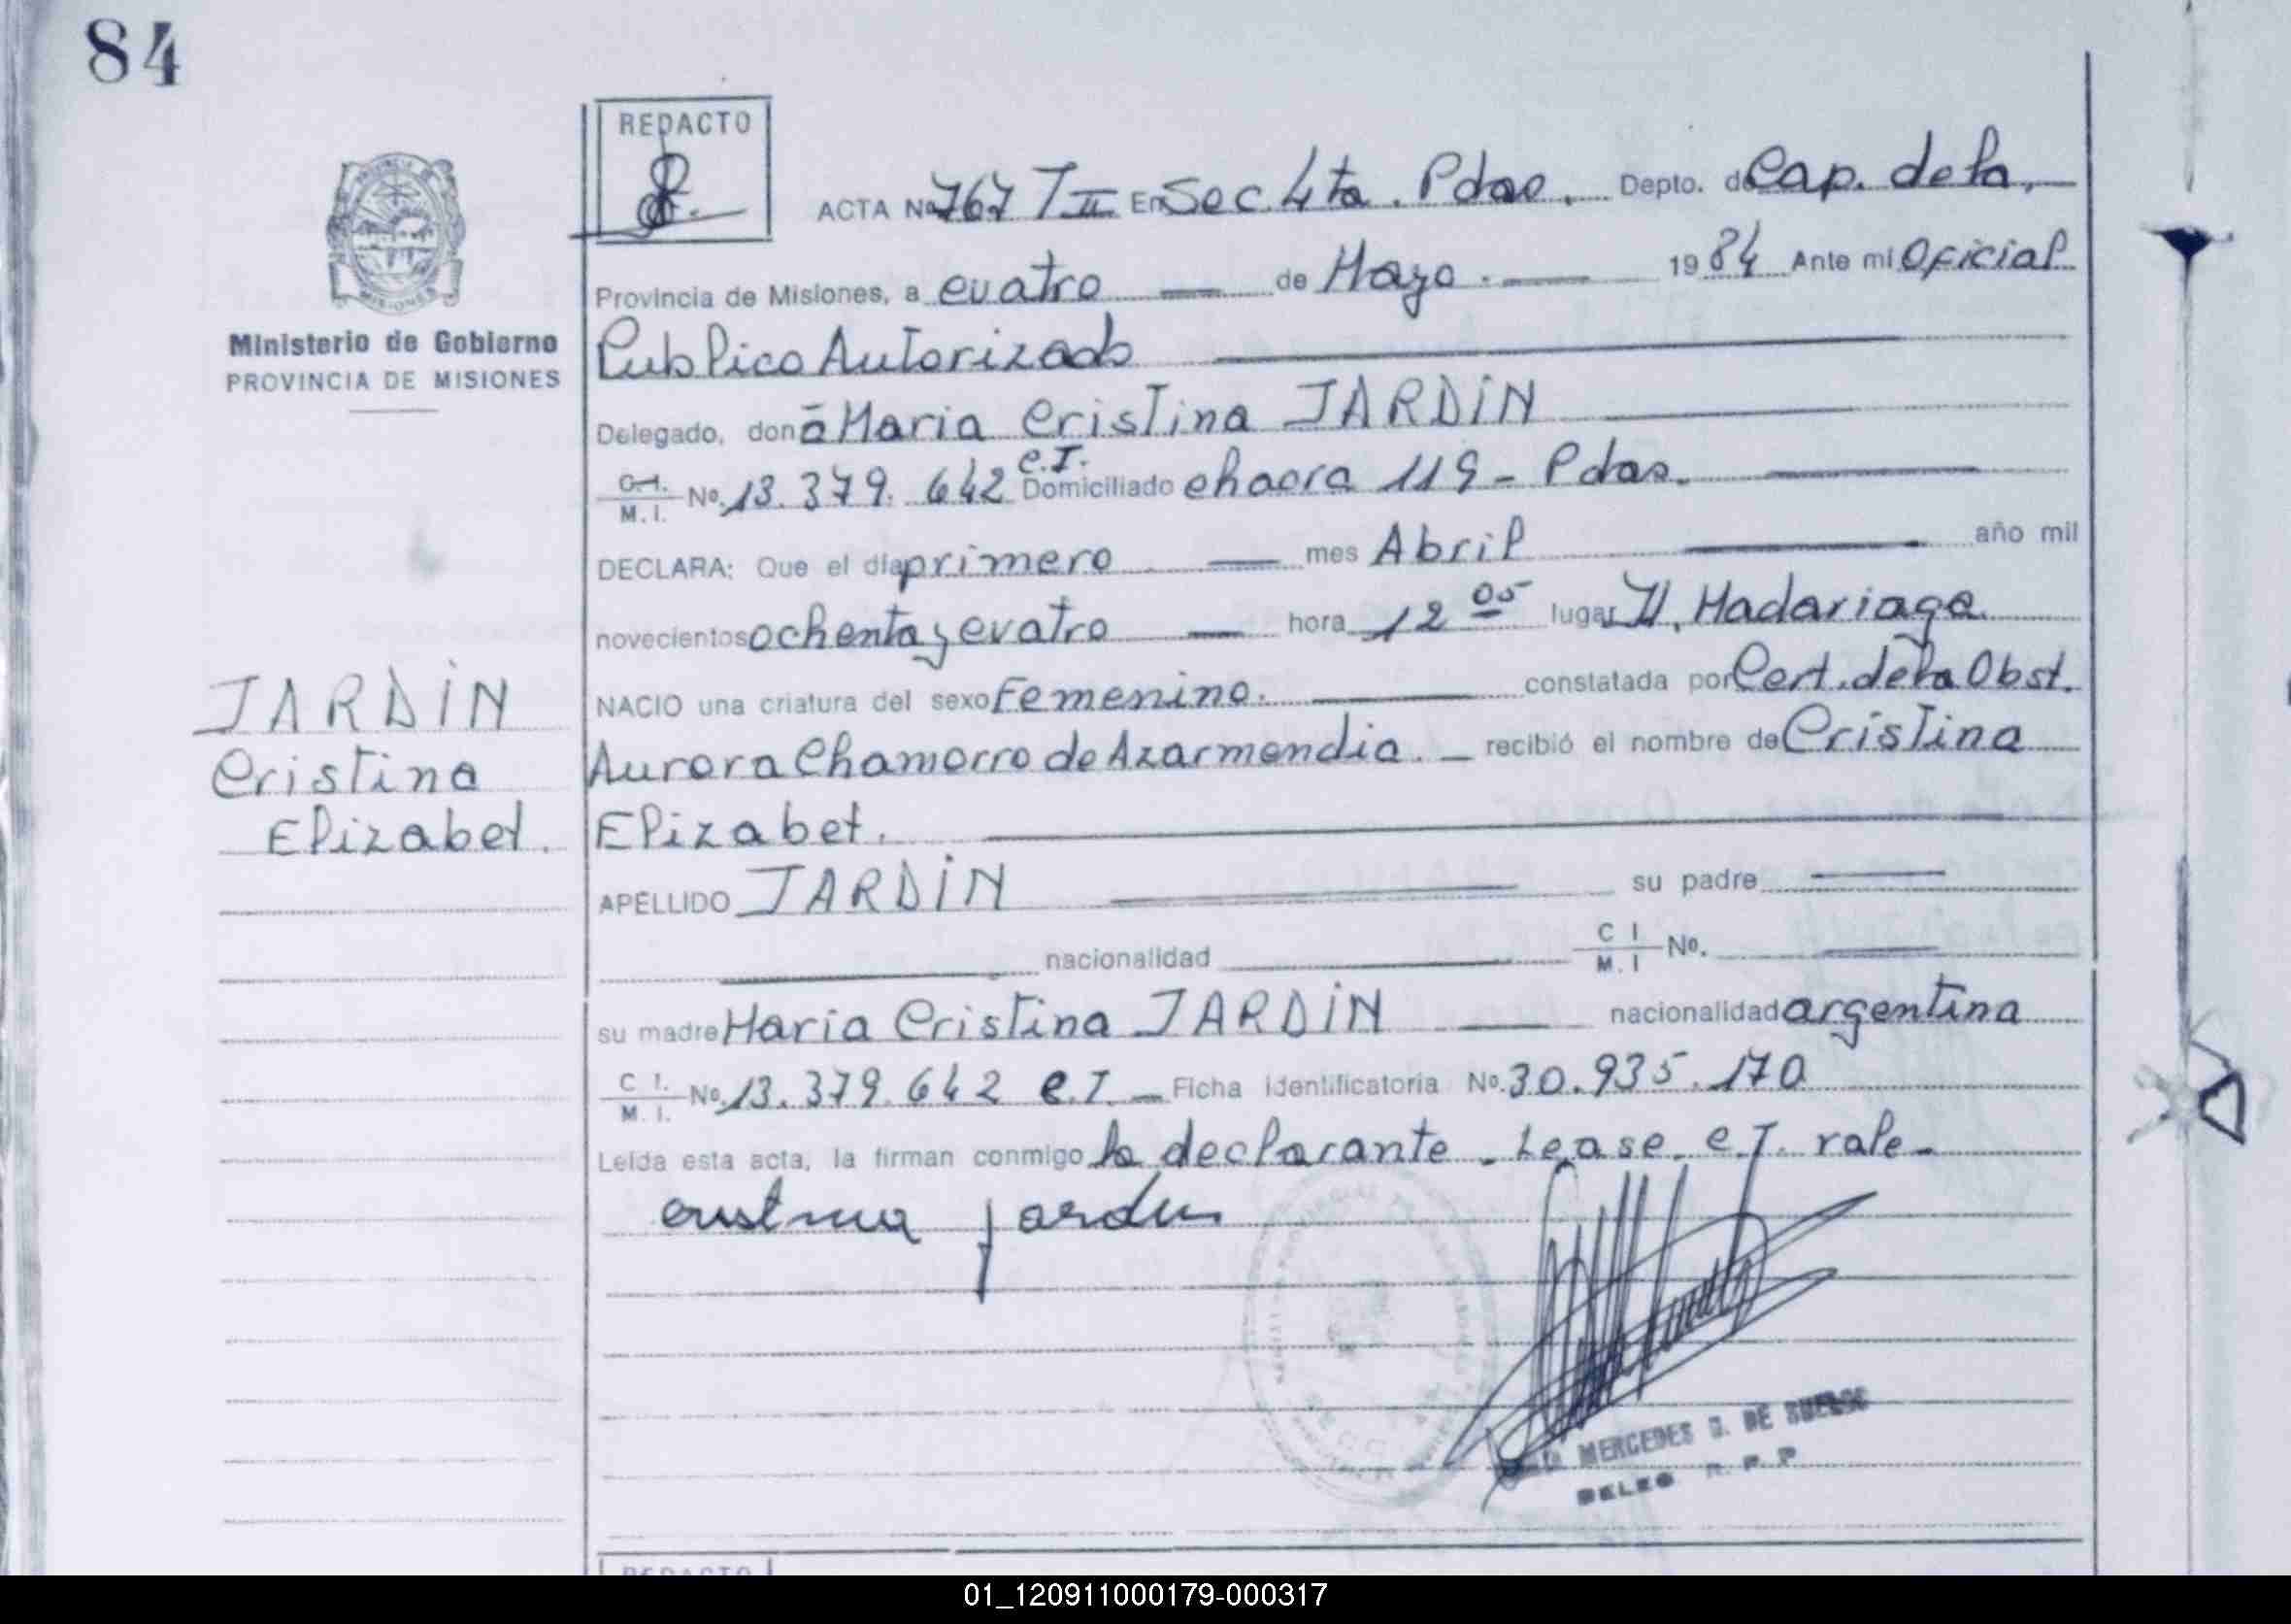 84
REDACTO
ACTA Nº 767 T II En Sec. 4ta. Pdas. Depto. de Cap. de la,
Provincia de Misiones, a cuatro — de Mayo. — 1984 Ante mí Oficial
Ministerio de Gobierno
PROVINCIA DE MISIONES
Publico Autorizado
Delegado, doña Maria Cristina JARDIN
C.I.
C.I. M.I. No. 13.379.642 Domiciliado chacra 119 - Pdas.
DECLARA: Que el día primero — mes Abril — año mil
novecientos ochenta y cuatro — hora 12 05 lugar H. Madariaga
NACIO una criatura del sexo Femenino. — constatada por Cert. de la Obst.
Aurora Chamorro de Azarmendia. — recibió el nombre de Cristina
Elizabet.
JARDIN
Cristina
Elizabet.
APELLIDO JARDIN — su padre —
— nacionalidad — C I M. I No. —
su madre Maria Cristina JARDIN — nacionalidad argentina
C I. M. I. No. 13.379.642 C.I. — Ficha identificatoria No. 30.935.170
Leída esta acta, la firman conmigo la declarante - Lease. C.I. vale -
cristina jardin
MERCEDES DE
DELEG R. P. P
REDACTO
01_120911000179-000317